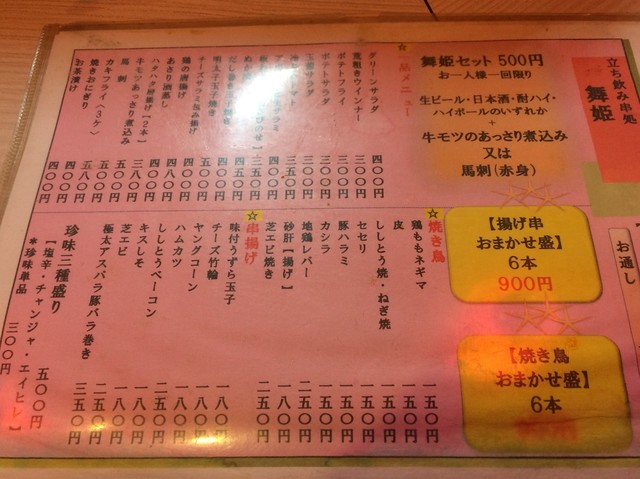 立ち飲み串処
舞姫
お通し
舞姫セット 500円
お一人様一回限り
生ビール・日本酒・酎ハイ・
ハイボールのいずれか
+
牛モツのあっさり煮込み
又は
馬刺(赤身)
【揚げ串
おまかせ盛】
6本
900円
【焼き鳥
おまかせ盛】
6本
☆一品メニュー
グリーンサラダ 四〇〇円
荒挽きウインナー 三〇〇円
ポテトフライ 三〇〇円
ポテトサラダ 三〇〇円
玉葱サラダ 三〇〇円
明太子玉子焼き
チーズサラミ包み揚げ
鶏の唐揚げ
あさり酒蒸し 四八〇円
ハタハタ唐揚げ【2本】 四〇〇円
牛モツあっさり煮込み 三八〇円
馬刺 五〇〇円
カキフライ〈3ケ〉 五八〇円
焼きおにぎり 四〇〇円
お茶漬け 四〇〇円
☆焼き鳥
鶏ももネギマ 一五〇円
皮 一五〇円
ししとう焼・ねぎ焼 一五〇円
セセリ 一五〇円
豚ハラミ 一五〇円
カシラ 一五〇円
地鶏レバー 一五〇円
砂肝【揚げ】 二五〇円
芝エビ焼き 二五〇円
☆串揚げ
味付うずら玉子 一八〇円
チーズ竹輪 一八〇円
ヤングコーン 一八〇円
ハムカツ 一八〇円
ししとうベーコン 二五〇円
キスしそ 一八〇円
芝エビ 一八〇円
極太アスパラ豚バラ巻き 二五〇円
三五〇円
珍味三種盛り 五〇〇円
【塩辛・チャンジャ・エイヒレ】
*珍味単品 三〇〇円